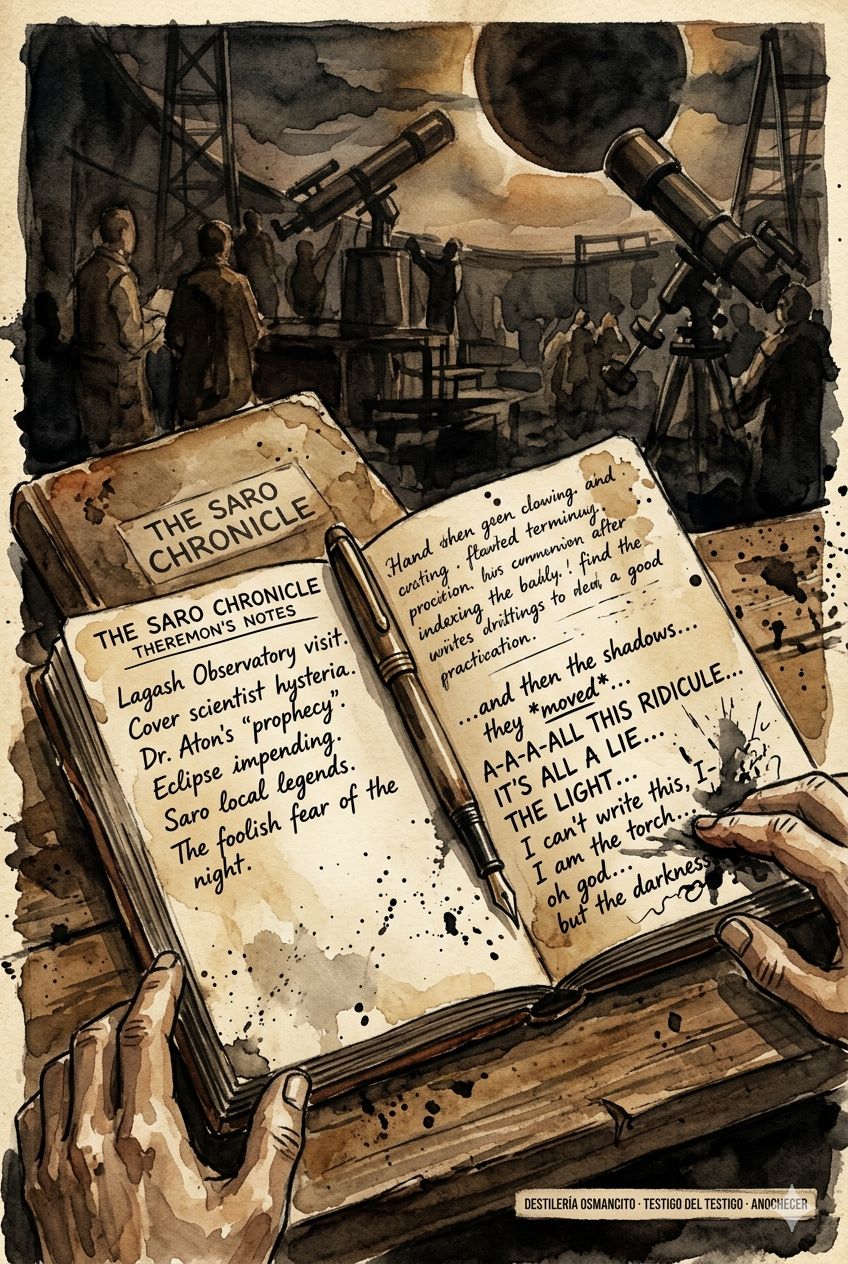 THE SARO
CHRONICLE
THE SARO CHRONICLE
THEREMON'S NOTES
Lagash Observatory visit.
Cover scientist hysteria.
Dr. Aton's "prophecy".
Eclipse impending.
Saro local legends.
The foolish fear of the
night.
Hand geen clowing and
terminung.
procition, his after
indexing the find the
writes to a good
practication.
...and then the shadows...
they *moved*...
A-A-A-ALL THIS RIDICULE...
IT'S ALL A LIE...
THE LIGHT...
I can't write this, I-
I am the torch...
oh god...
but the darkness
DESTILERÍA OSMANCITO · TESTIGO DEL TESTIGO · ANOCHECER